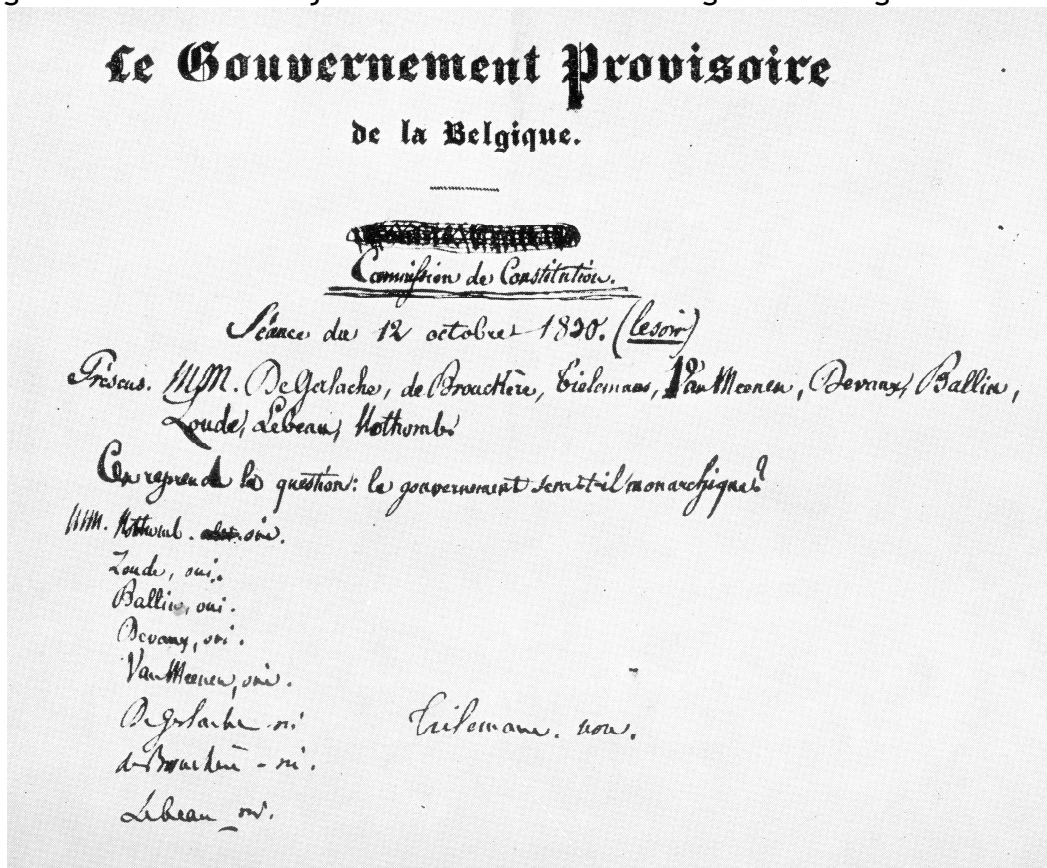 Le Gouvernement Provisoire
de la Belgique.
Commission de Constitution.
Séance du 12 octobre 1830. (le soir)
Présens. MM. De Gerlache, de Brouckère, Tielemans, Van Meenen, Devaux, Ballin,
Zoude, Lebeau, Nothomb.
On reprend la question: le gouvernement sera-t-il monarchique?
MM. Nothomb. oui.
Zoude, oui.
Ballin, oui.
Devaux, oui.
Van Meenen, oui.
De Gerlache oui
Tielemans. non.
de Brouckère - oui.
Lebeau _ oui.